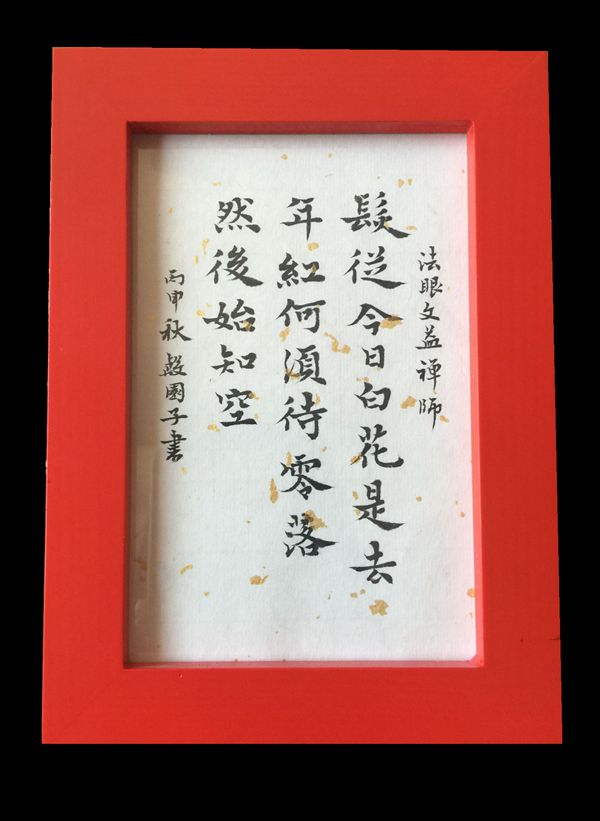 法眼文益禪師
髮從今日白花是去
年紅何須待零落
然後始知空
丙申秋國子書